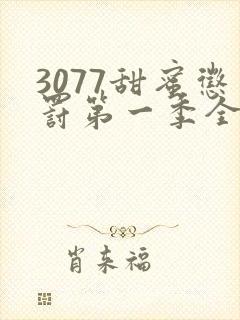 3077甜蜜惩
罚第一季全
肖来福